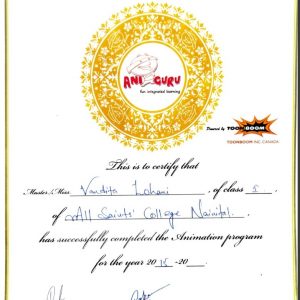 ANI GURU
fun integrated learning
Powered by TOONBOOM
TOONBOOM INC. CANADA
This is to certify that
Master/Miss Vandita Lohani of class
of All Saints' College Nainital.
has successfully completed the Animation program
for the year 2015-20